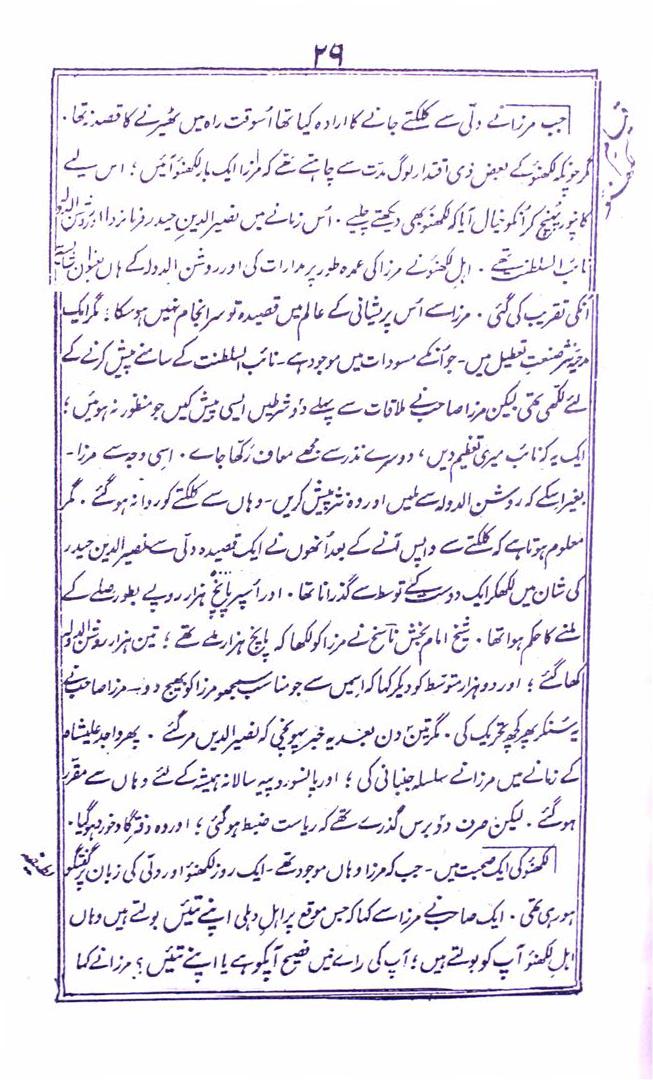 ۲۹
جب مرزا نے دلّی سے کلکتے جانے کا ارادہ کیا تھا اُسوقت راہ میں ٹھیرنے کا قصد نہ تھا۔
مگر چونکہ لکھنؤ کے بعض ذی اقتدار لوگ مدّت سے چاہتے تھے کہ مرزا ایک بار لکھنؤ آئیں؛ اس لیے
کانپور پہنچ کر اُنکو خیال آیا کہ لکھنؤ بھی دیکھتے چلیے۔ اُس زمانے میں نصیرالدین حیدر فرمانروا اور روشن الدولہ
نائب السلطنت تھے۔ اہلِ لکھنؤ نے مرزا کی عمدہ طور پر مدارات کی اور روشن الدولہ کے ہاں بعنوانِ شایستہ
اُنکی تقریب کی گئی۔ مرزا سے اُس پریشانی کے عالم میں قصیدہ تو سر انجام نہیں ہو سکا؛ مگر ایک
مدحیہ نثر صنعتِ تعطیل میں۔ جو اُنکے مسودات میں موجود ہے۔ نائب السلطنت کے سامنے پیش کرنے کے
لئے لکھی تھی لیکن مرزا صاحب نے ملاقات سے پہلے دو شرطیں ایسی پیش کیں جو منظور نہ ہوئیں؛
ایک یہ کہ نائب میری تعظیم دیں، دوسرے نذر سے مجھے معاف رکھا جاے۔ اسی وجہ سے مرزا۔
بغیر اسکے کہ روشن الدولہ سے ملیں اور وہ نثر پیش کریں۔ وہاں سے کلکتے کو روانہ ہو گئے۔ مگر
معلوم ہوتا ہے کہ کلکتے سے واپس آنے کے بعد اُنھوں نے ایک قصیدہ دلّی سے نصیرالدین حیدر
کی شان میں لکھکر ایک دوست کے توسط سے گذرانا تھا۔ اور اُسپر پانچ ہزار روپے بطور صلے کے
ملنے کا حکم ہوا تھا۔ شیخ امام بخش ناسخ نے مرزا کو لکھا کہ پانچ ہزار ملے تھے؛ تین ہزار روشن الدولہ
کھا گئے؛ اور دو ہزار متوسّط کو دیکر کہا کہ اسمیں سے جو مناسب سمجھو مرزا کو بھیج دو۔ مرزا صاحب نے
یہ سنکر پھر کچھ تحریک کی۔ مگر تین دن بعد یہ خبر پہونچی کہ نصیرالدین مر گئے۔ پھر واجد علیشاہ
کے زمانے میں مرزا نے سلسلہ جنبانی کی؛ اور پانسو روپیہ سالانہ ہمیشہ کے لئے وہاں سے مقرّر
ہو گئے۔ لیکن صرف دو برس گذرے تھے کہ ریاست ضبط ہو گئی؛ اور وہ دفتر گاو خورد ہو گیا۔
لکھنؤ کی ایک صحبت میں۔ جب کہ مرزا وہاں موجود تھے۔ ایک روز لکھنؤ اور دلّی کی زبان پر گفتگو
ہو رہی تھی۔ ایک صاحب نے مرزا سے کہا کہ جس موقع پر اہلِ دہلی اپنے تئیں بولتے ہیں وہاں
اہلِ لکھنؤ آپ کو بولتے ہیں؛ آپ کی راے میں فصیح آپکو ہے یا اپنے تئیں؟ مرزا نے کہا